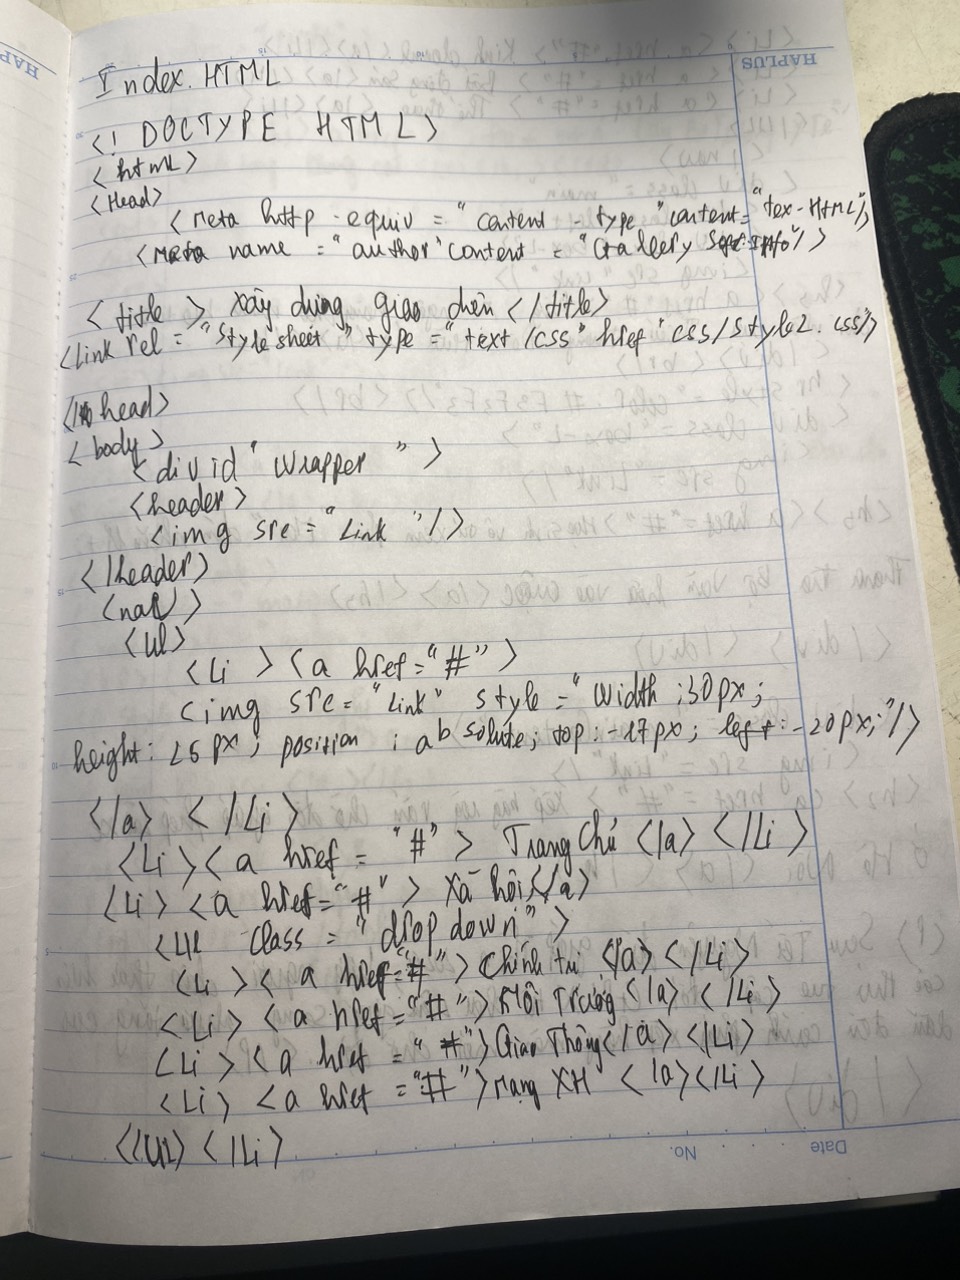 HAPLUS
Index. HTML
<! DOCTYPE HTML>
<html>
<Head>
<Meta http-equiv = "content - type "content="tex-HTML"/>
<Meta name = "author" content = "Galeery
<title> Xây dưng giao diên </title>
<link rel = "style sheet " type = "text /css" href " css/style2. css"/>
</ head>
<body>
<div id " wrapper ">
<header>
<img src = "Link "/>
</header>
<nav>
<ul>
<Li> <a href="#">
<img src= "Link" style = "width ;30px;
height: 25 px; position : absolute; top: -17px; left: -20px;"/>
</a> </Li>
<Li><a href = "#"> Trang Chủ </a> </Li>
<Li> <a href="#"> Xã hôi </a>
<Ul class = "drop down">
<Li> <a href="#"> Chính trị </a> </Li>
<Li> <a href="#"> Môi Trường </a> </Li>
<Li> <a href = "#"> Giao Thông </a> </Li>
<Li> <a href = "#"> Mạng XH </a></Li>
</UL> </Li>
No.
Date